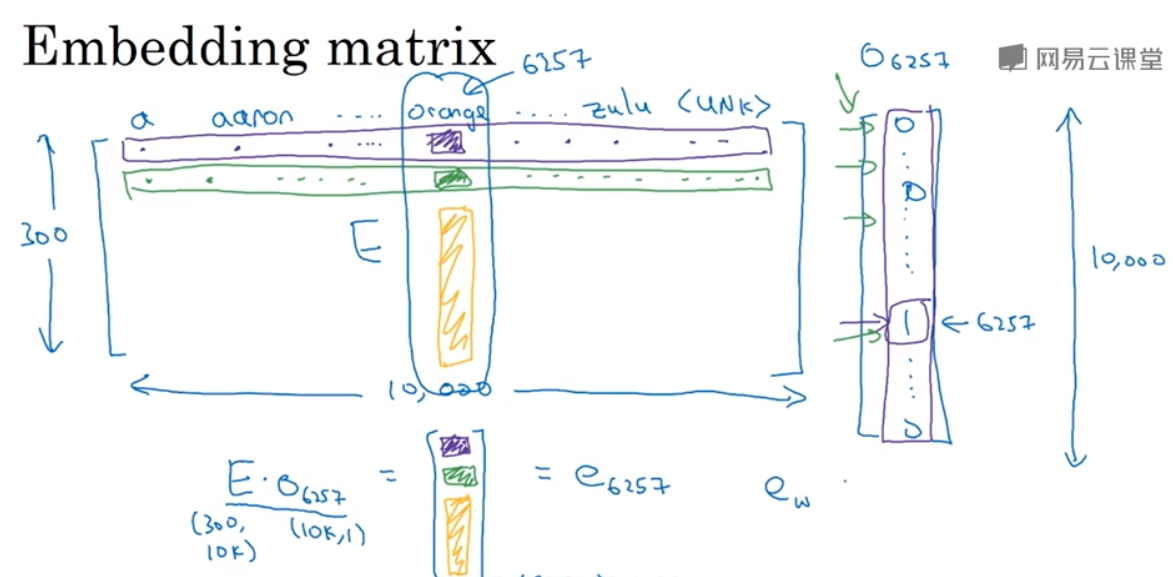 Embedding matrix
6257
O6257
网易云课堂
a aaron .... orange .... zulu <UNK>
300
E
10,000
0
0
1 ← 6257
0
10,000
E · O6257 = = e6257 ew
(300, 10K) (10K, 1)